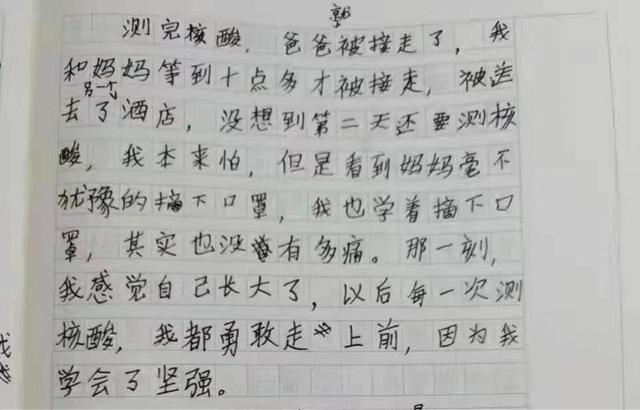 就
测完核酸，爸爸被接走了，我
和妈妈等到十点多才被接走，被送
另一个
去了酒店，没想到第二天还要测核
酸，我本来怕，但是看到妈妈毫不
犹豫的摘下口罩，我也学着摘下口
罩，其实也没有多痛。那一刻，
我感觉自己长大了，以后每一次测
核酸，我都勇敢走上前，因为我
学会了坚强。